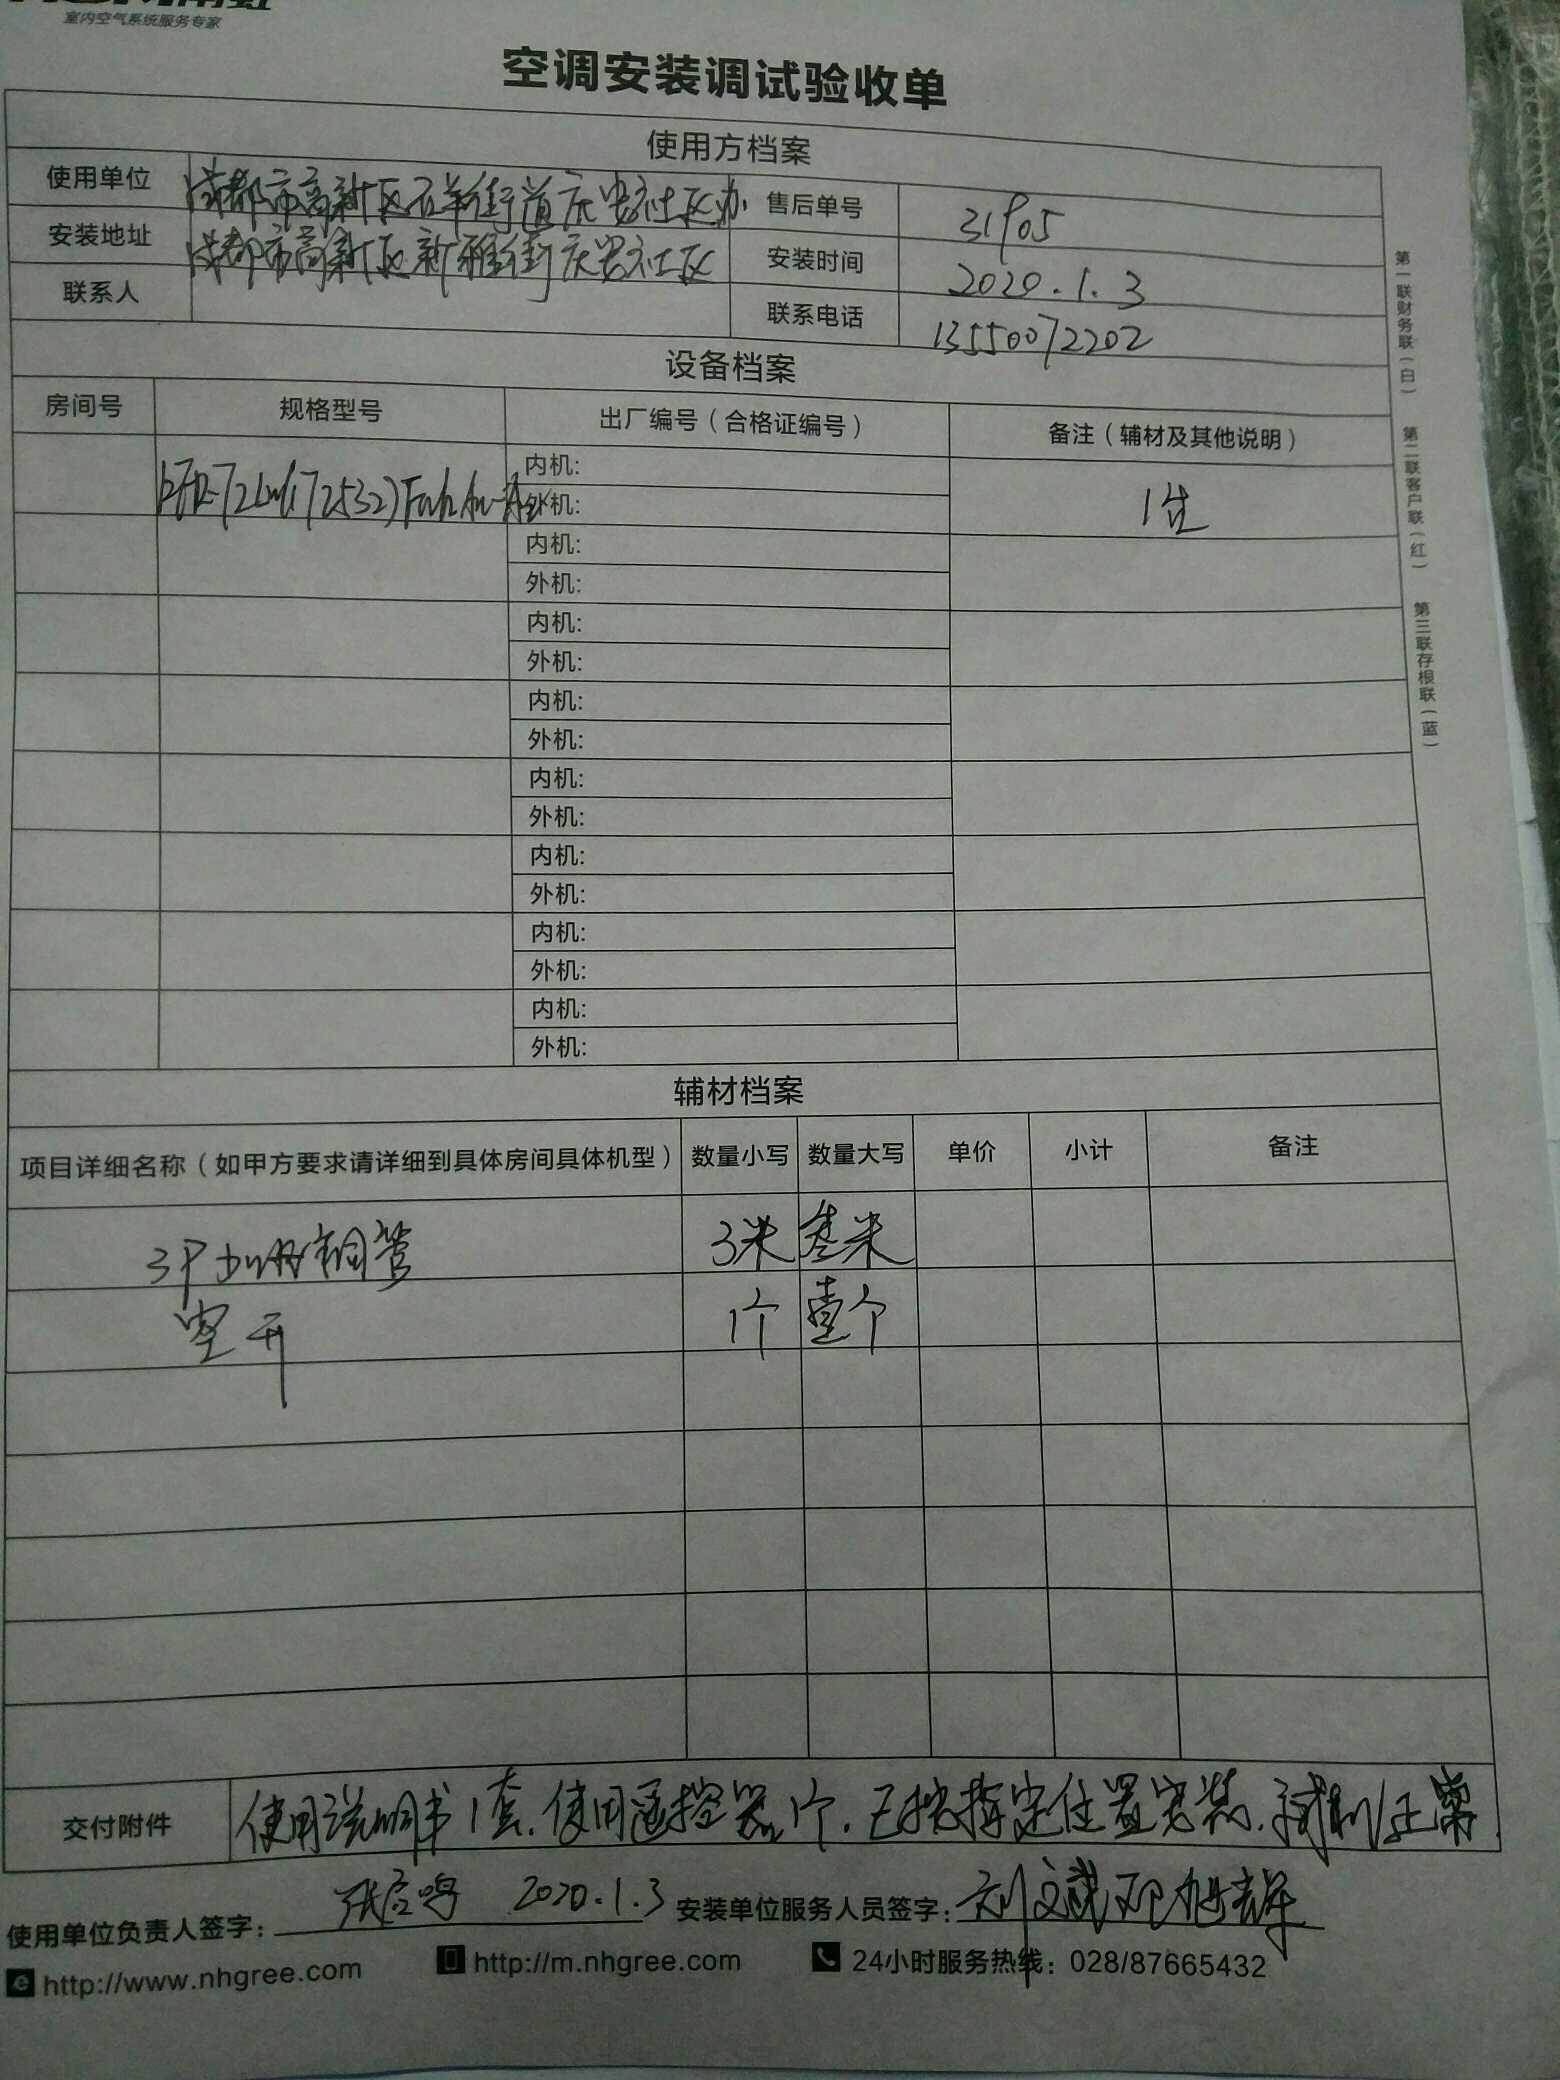 室内空气系统服务专家
空调安装调试验收单
使用方档案
使用单位 成都市高新区石羊街道庆安社区办 售后单号 31905
安装地址 成都市高新区新雅街庆安社区 安装时间 2020.1.3
联系人 联系电话 13550072202
设备档案
房间号 规格型号 出厂编号（合格证编号） 备注（辅材及其他说明）
内机:
外机:
内机:
外机:
内机:
外机:
内机:
外机:
内机:
外机:
内机:
外机:
内机:
外机:
内机:
外机:
辅材档案
项目详细名称（如甲方要求请详细到具体房间具体机型） 数量小写 数量大写 单价 小计 备注
3P加长铜管 3米 叁米
空开 1个 壹个
交付附件 使用说明书1套.使用遥控器1个.已按指定位置安装.试机正常.
使用单位负责人签字: 2020.1.3 安装单位服务人员签字: 刘文斌
http://www.nhgree.com http://m.nhgree.com 24小时服务热线: 028/87665432
第一联财务联（白） 第二联客户联（红） 第三联存根联（蓝）